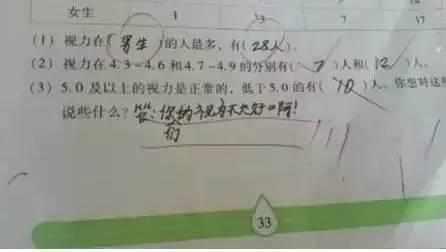 女生 1 13 7 17
(1) 视力在(寄生)的人最多，有(28人)。
(2) 视力在4.3-4.6和4.7-4.9的分别有(7)人和(12)人。
(3) 5.0及以上的视力是正常的，低于5.0的有(10)人。你想对这
说些什么？答：你的视力不太好啊！
们
33